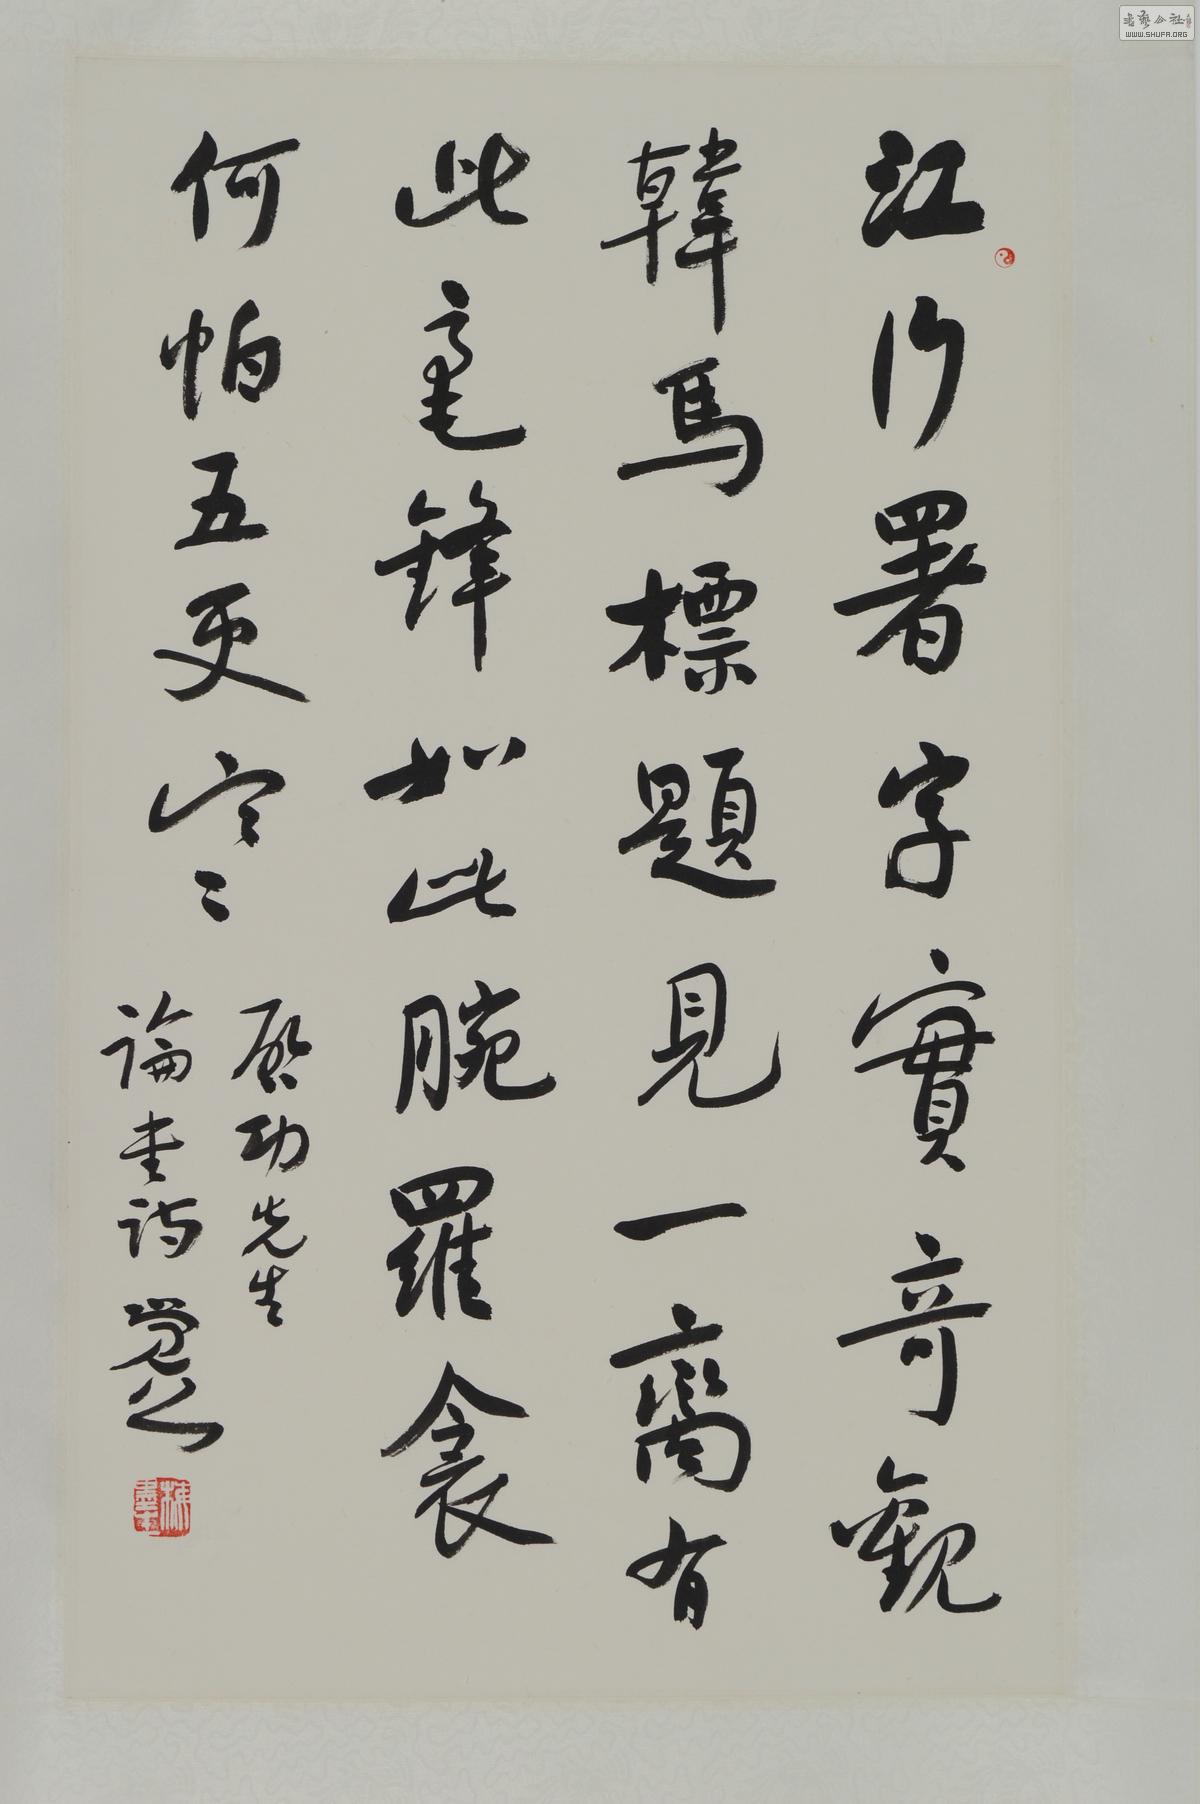 江行署字實奇觀
韓馬標題見一臠有
此毫鋒如此腕羅衾
何怕五更寒
啟功先生
論書詩 覺公
书艺公社
WWW.SHUFA.ORG